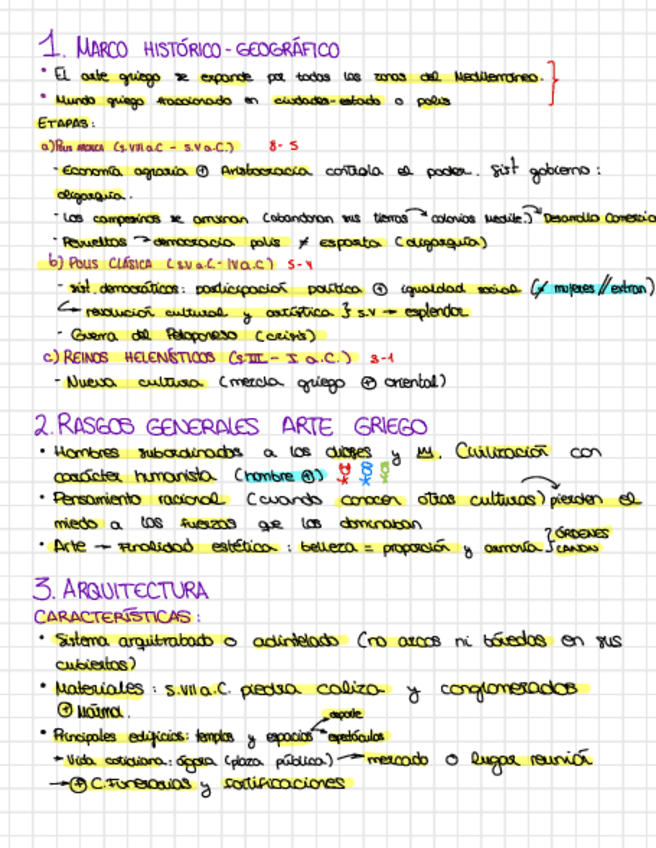 1. MARCO HISTÓRICO-GEOGRÁFICO
• El arte griego se expande por todas las zonas del Mediterráneo.
• Mundo griego fraccionado en ciudades-estado o polis
ETAPAS:
a) POLIS ARCAICA (s.VIII a.C - s.V a.C.) 8-5
- Economía agraria ⊕ Aristocracia controla el poder. Sist gobierno:
oligarquía.
- Los campesinos se arruinan (abandonan sus tierras → colonias Medite.) → Desarrollo Comercio
- Revueltas → democracia polis ≠ esparta (oligarquía)
b) POLIS CLÁSICA (s.V a.C.- IV a.C) 5-4
- sist. democráticos: participación política ⊕ igualdad social (≠ mujeres // extran)
↳ revolución cultural y artística } s.V → esplendor
- Guerra del Peloponeso (crisis)
c) REINOS HELENÍSTICOS (s.III - I a.C.) 3-1
- Nueva cultura (mezcla griego ⊕ oriental)
2. RASGOS GENERALES ARTE GRIEGO
• Hombres subordinados a los dioses y. Civilización con
carácter humanista (hombre ⊕)
• Pensamiento racional (cuando conocen otras culturas) pierden el
miedo a las fuerzas que los dominaban
• Arte → Finalidad estética: belleza = proporción y armonía { ÓRDENES
CANON
3. ARQUITECTURA
CARACTERÍSTICAS:
• Sistema arquitrabado o adintelado (no arcos ni bóvedas en sus
cubiertas)
• Materiales: s.VII a.C. piedra caliza y conglomerados
⊕ Mármol.
deporte
• Principales edificios: templos y espacios espectáculos
→ Vida cotidiana: ágora (plaza pública) → mercado o lugar reunión
→ ⊕ C. Funerarias y fortificaciones